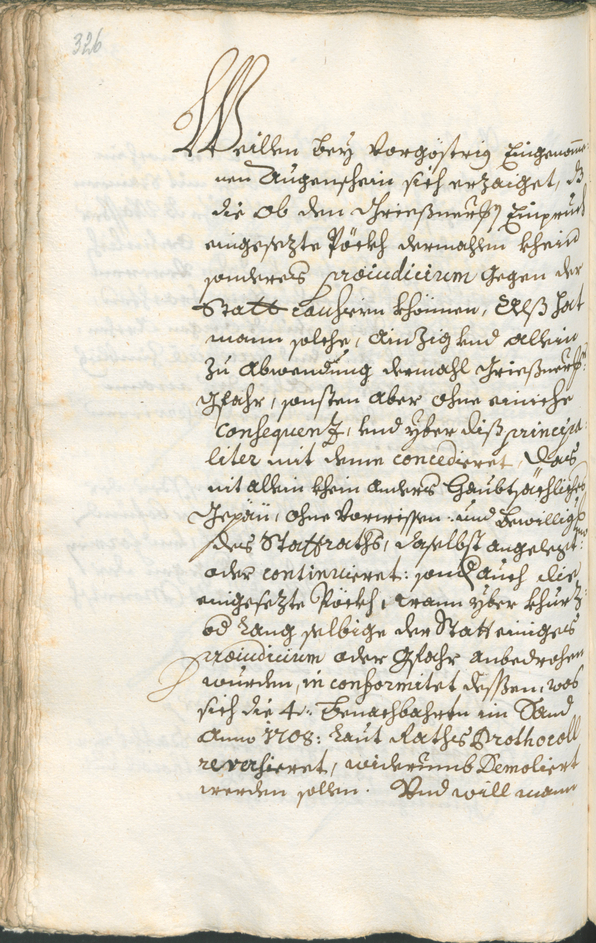 326
Weillen bey Vorgöstrig Eingenom̅e-
nen Augenschein sich erzaiget, dz
die ob den Griessnerß Einpruch
eingesezte Pöckh dermahlen khein
sonders præiudicium gegen der
Statt causieren khönnen, Alß hat
mann solche, ainzig und allein
zu Abwendung dermahl Griessnerß
Gfahr, sonsten aber ohne einiche
Consequenz, und yber diß principa-
liter mit deme concedieret, dass
nit allein khein anders haubtsächliches
Gepäu, ohne Vorwissen und Bewilligung
des Stattraths, daselbst angelegt
oder continuieret: sond auch die
eingesezte Pöckh, wann yber khurz
od lang selbige der Statt einiges
præiudicium oder Gfahr anbedrohen
wurden, in conformitet dessen, was
sich die 4. Benachbahrten im Sand
Anno 1708: Laut Raths Prothocoll
reversieret, widerumb Demoliert
werden sollen. Und will mann